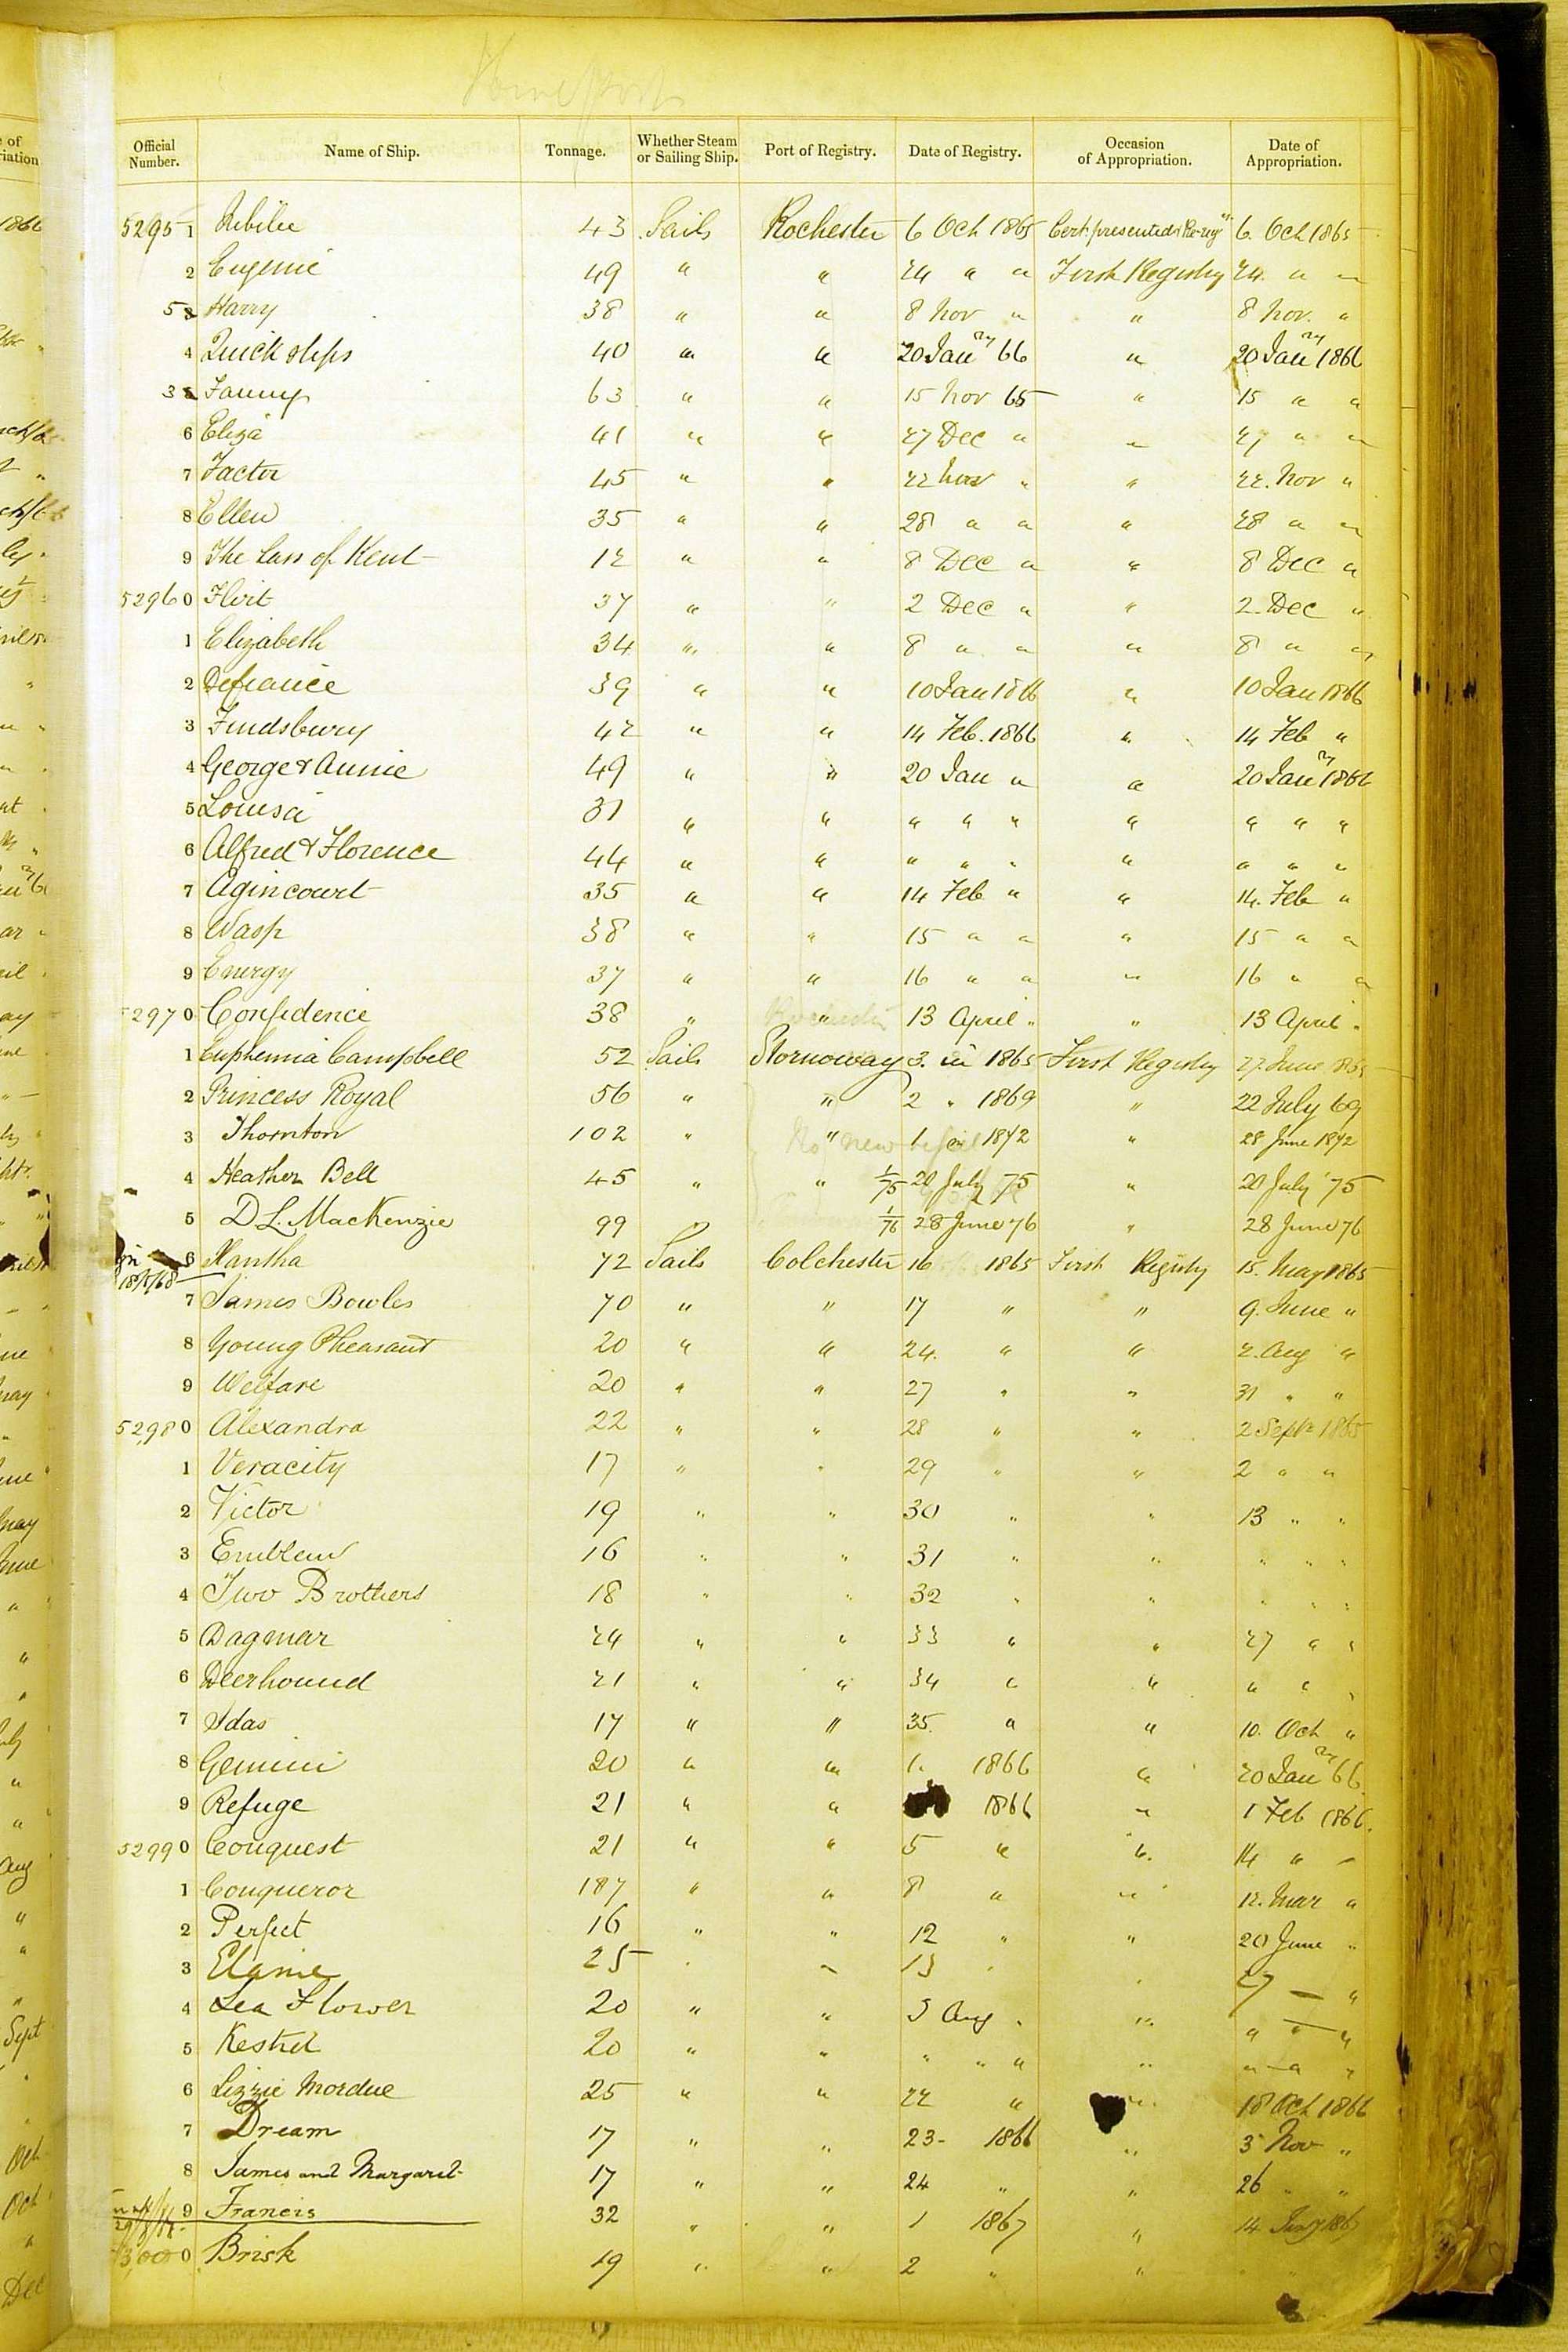 Official Number. Name of Ship. Tonnage. Whether Steam or Sailing Ship. Port of Registry. Date of Registry. Occasion of Appropriation. Date of Appropriation.
5295 1 43 Sails Rochester 6 Oct 1865 Cert. presented 6. Oct 1865
2 Eugenie 49 " " 24 " " First Registry 24. " "
5 3 Harry 38 " " 8 Nov " " 8 Nov. "
4 Quickstep 40 " " 20 Jan ry 66 " 20 Jan ry 1866
3 5 Fanny 63 " " 15 Nov 65 " 15 " "
6 Eliza 41 " " 27 Dec " " 27 " "
7 Factor 45 " " 22 Nov " " 22. Nov "
8 Ellen 35 " " 28 " " " 28 " "
9 The Lass of Kent 12 " " 8 Dec " " 8 Dec "
5296 0 Flirt 37 " " 2 Dec " " 2. Dec "
1 Elizabeth 34 " " 8 " " " 8 " "
2 Defiance 39 " " 10 Jan 1866 " 10 Jan 1866
3 Frindsbury 42 " " 14 Feb. 1866 " 14 Feb "
4 George & Annie 49 " " 20 Jan " " 20 Jan ry 1866
5 Louisa 31 " " " " " " " " "
6 Alfred & Florence 44 " " " " " " " " "
7 Agincourt 35 " " 14 Feb " " 14. Feb "
8 Wasp 38 " " 15 " " " 15 " "
9 Energy 37 " " 16 " " " 16 " "
5297 0 Confidence 38 " " 13 April " " 13 April "
1 Euphemia Campbell 52 Sails Stornoway 3. in 1865 First Registry 27. June 1865
2 Princess Royal 56 " " 2 " 1869 " 22 July 69
3 Thornton 102 " " 1 in 1872 " 28 June 1872
4 Heather Bell 45 " " 1/75 20 July 75 " 20 July 75
5 D L. MacKenzie 99 " 1/76 28 June 76 " 28 June 76
6 Xantha 72 Sails Colchester 16 1865 First Registry 15. May 1865
18/5/68
7 James Bowles 70 " " 17 " " 9. June "
8 Young Pheasant 20 " " 24. " " 2. Aug "
9 Welfare 20 " " 27 " " 31 " "
5298 0 Alexandra 22 " " 28 " " 2 Septr 1865
1 Veracity 17 " " 29 " " 2 " "
2 Victor 19 " " 30 " " 13 " "
3 Emblem 16 " " 31 " " " " "
4 Two Brothers 18 " " 32 " " " " "
5 Dagmar 24 " " 33 " " 27 " "
6 Deerhound 21 " " 34 " " " " "
7 Idas 17 " " 35. " " 10. Oct "
8 Gemini 20 " " 1. 1866 " 20 Jan ry 66
9 Refuge 21 " " 1866 " 1 Feb 1866.
5299 0 Conquest 21 " " 5 " " 14 " "
1 Conqueror 187 " " 8 " " 12. Mar "
2 Perfect 16 " " 12 " " 20 June "
3 25 " " 13 " " 27 — "
4 Sea Flower 20 " " 3 Aug " " " " "
5 Kestrel 20 " " " " " " " " "
6 Lizzie Mordue 25 " " 22 " " 18 Oct 1866
7 Dream 17 " " 23 - 1866 " 3 Nov "
8 James and Margaret 17 " " 24 " " 26 " "
9 Francis 32 " " 1 1867 " 14 Jany 1867
0 Brisk 19 " " 2 " "